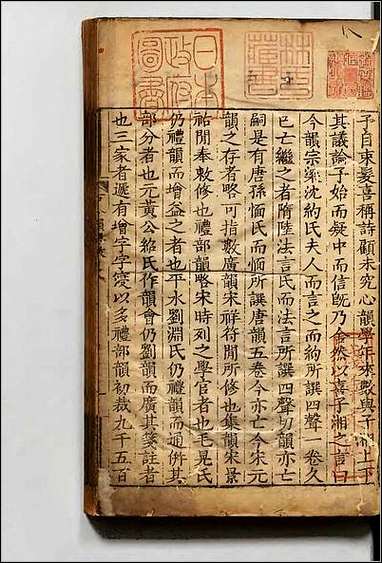 予自束髮喜稱詩顧未究心韻學年來數與子湘上下
其議論予始而疑中而信旣乃僉然以喜子湘之言曰
今韻宗梁沈約氏夫人而言之而約所譔四聲一卷久
已亡繼之者隋陸法言氏而法言所譔四聲切韻亦亡
嗣是有唐孫愐氏而愐所譔唐韻五卷今亦亡今宋元
韻之存者略可指數廣韻宋祥符間所修也集韻宋景
祐間奉敕修也禮部韻略宋時列之學官者也毛晃氏
仍禮韻而增益之者也平水劉淵氏仍禮韻而通倂其
部分者也元黃公紹氏作韻會仍劉韻而廣其箋註者
也三家者遞有增字字變以多禮部韻初裁九千五百
日本
政府
圖書
林氏
藏書